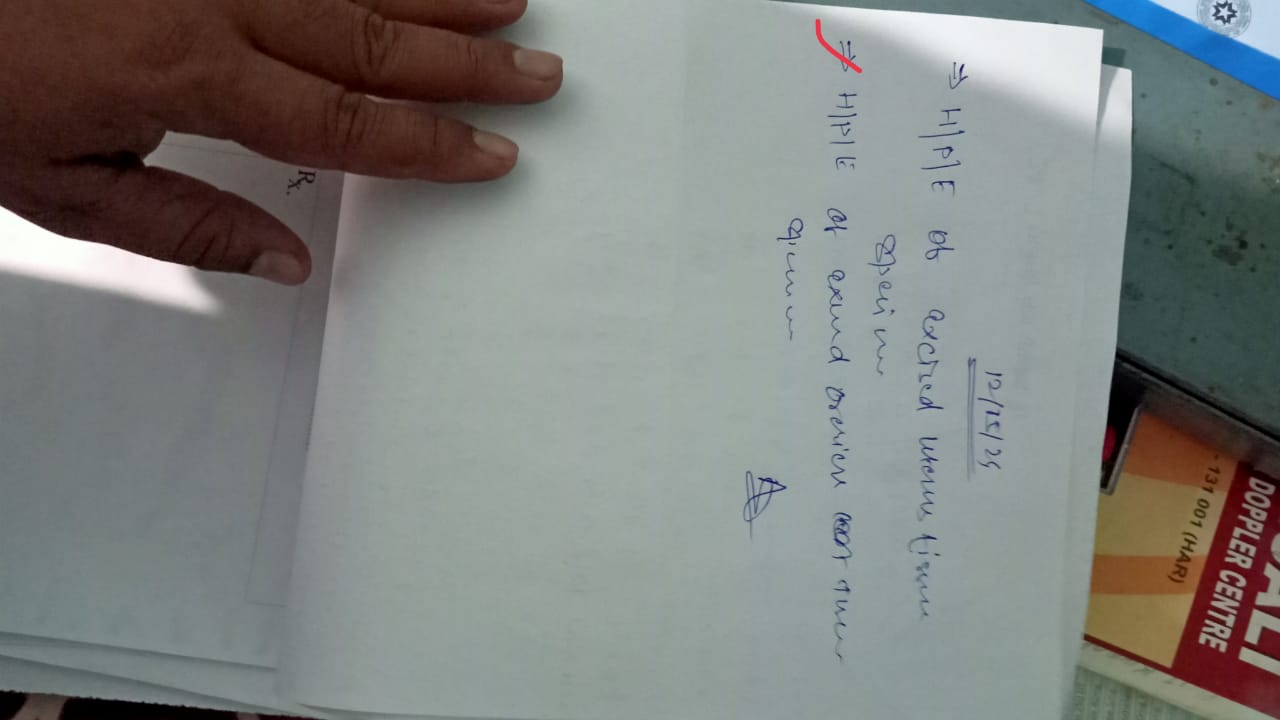 12/15/25
⇒ H/P/E of excised uterus tissue
specimen
⇒ H/P/E of excised ovarian cyst
specimen
Rx.
- 131 001 (HAR)
DOPPLER CENTRE